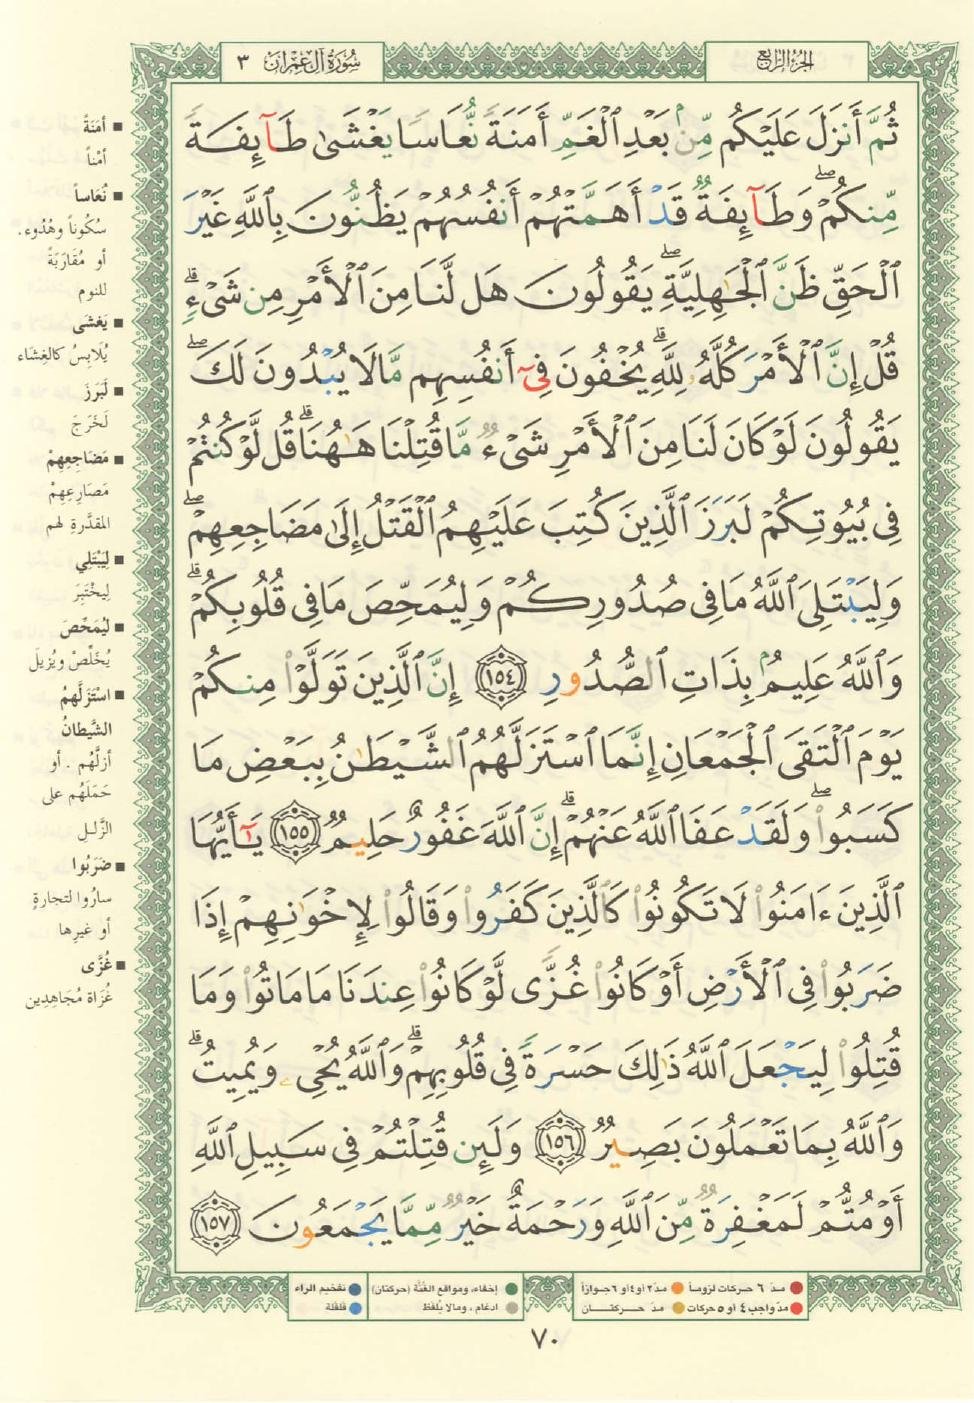 الجزء الرابع
سورة آل عمران ٣
ثُمَّ أَنزَلَ عَلَيْكُم مِّنۢ بَعْدِ ٱلْغَمِّ أَمَنَةً نُّعَاسًا يَغْشَىٰ طَآئِفَةً
مِّنكُمْ ۖ وَطَآئِفَةٌ قَدْ أَهَمَّتْهُمْ أَنفُسُهُمْ يَظُنُّونَ بِٱللَّهِ غَيْرَ
ٱلْحَقِّ ظَنَّ ٱلْجَـٰهِلِيَّةِ ۖ يَقُولُونَ هَل لَّنَا مِنَ ٱلْأَمْرِ مِن شَىْءٍ ۗ
قُلْ إِنَّ ٱلْأَمْرَ كُلَّهُۥ لِلَّهِ ۗ يُخْفُونَ فِىٓ أَنفُسِهِم مَّا لَا يُبْدُونَ لَكَ ۖ
يَقُولُونَ لَوْ كَانَ لَنَا مِنَ ٱلْأَمْرِ شَىْءٌ مَّا قُتِلْنَا هَـٰهُنَا ۗ قُل لَّوْ كُنتُمْ
فِى بُيُوتِكُمْ لَبَرَزَ ٱلَّذِينَ كُتِبَ عَلَيْهِمُ ٱلْقَتْلُ إِلَىٰ مَضَاجِعِهِمْ ۖ
وَلِيَبْتَلِىَ ٱللَّهُ مَا فِى صُدُورِكُمْ وَلِيُمَحِّصَ مَا فِى قُلُوبِكُمْ ۗ
وَٱللَّهُ عَلِيمٌۢ بِذَاتِ ٱلصُّدُورِ ١٥٤ إِنَّ ٱلَّذِينَ تَوَلَّوْا۟ مِنكُمْ
يَوْمَ ٱلْتَقَى ٱلْجَمْعَانِ إِنَّمَا ٱسْتَزَلَّهُمُ ٱلشَّيْطَـٰنُ بِبَعْضِ مَا
كَسَبُوا۟ ۖ وَلَقَدْ عَفَا ٱللَّهُ عَنْهُمْ ۗ إِنَّ ٱللَّهَ غَفُورٌ حَلِيمٌ ١٥٥ يَـٰٓأَيُّهَا
ٱلَّذِينَ ءَامَنُوا۟ لَا تَكُونُوا۟ كَٱلَّذِينَ كَفَرُوا۟ وَقَالُوا۟ لِإِخْوَٰنِهِمْ إِذَا
ضَرَبُوا۟ فِى ٱلْأَرْضِ أَوْ كَانُوا۟ غُزًّى لَّوْ كَانُوا۟ عِندَنَا مَا مَاتُوا۟ وَمَا
قُتِلُوا۟ لِيَجْعَلَ ٱللَّهُ ذَٰلِكَ حَسْرَةً فِى قُلُوبِهِمْ ۗ وَٱللَّهُ يُحْىِۦ وَيُمِيتُ ۗ
وَٱللَّهُ بِمَا تَعْمَلُونَ بَصِيرٌ ١٥٦ وَلَئِن قُتِلْتُمْ فِى سَبِيلِ ٱللَّهِ
أَوْ مُتُّمْ لَمَغْفِرَةٌ مِّنَ ٱللَّهِ وَرَحْمَةٌ خَيْرٌ مِّمَّا يَجْمَعُونَ ١٥٧
■ أَمَنَةً
أمْناً
■ نُعَاساً
سُكُوناً وهُدُوء.
أو مُقَارَبَةً
للنوم
■ يَغشى
يُلَابِسُ كالغِشَاء
■ لَبَرَزَ
لَخَرَجَ
■ مَضَاجِعِهِمْ
مَصَارِعِهِمْ
المقدَّرةِ لهم
■ لِيَبْتَلِي
لِيخْتَبِرَ
■ ليُمَحِّصَ
يُخَلِّصَ ويُزيلَ
■ اسْتَزَلَّهُمُ
الشَّيطانُ
أزلَّهُم . أو
حَمَلَهُم على
الزَّلل
■ ضَرَبُوا
سارُوا لتجارةٍ
أو غيرِها
■ غُزًّى
غُزَاة مُجَاهِدِين
مدّ ٦ حركات لزوماً ● مدّ ٢ أو ٤ أو ٦ جوازاً
مدّ واجب ٤ أو ٥ حركات ● مدّ حركتان
إخفاء، ومواقع الغُنَّة (حركتان) ● تفخيم الراء
ادغام ، ومالا يُلفظ ● قلقلة
٧٠